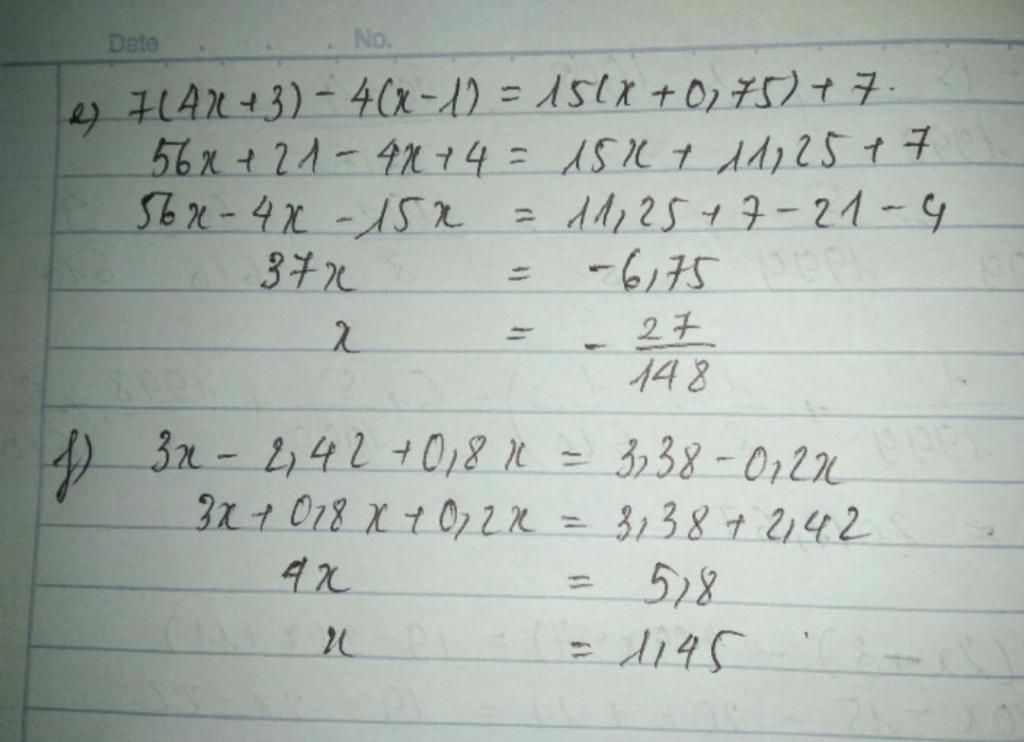 Date . . . No.
e) 7(4x+3) - 4(x-1) = 15(x+0,75) + 7.
56x + 21 - 4x + 4 = 15x + 11,25 + 7
56x - 4x - 15x = 11,25 + 7 - 21 - 4
37x = -6,75
x = - 27/148
f) 3x - 2,42 + 0,8x = 3,38 - 0,2x
3x + 0,8x + 0,2x = 3,38 + 2,42
4x = 5,8
x = 1,45